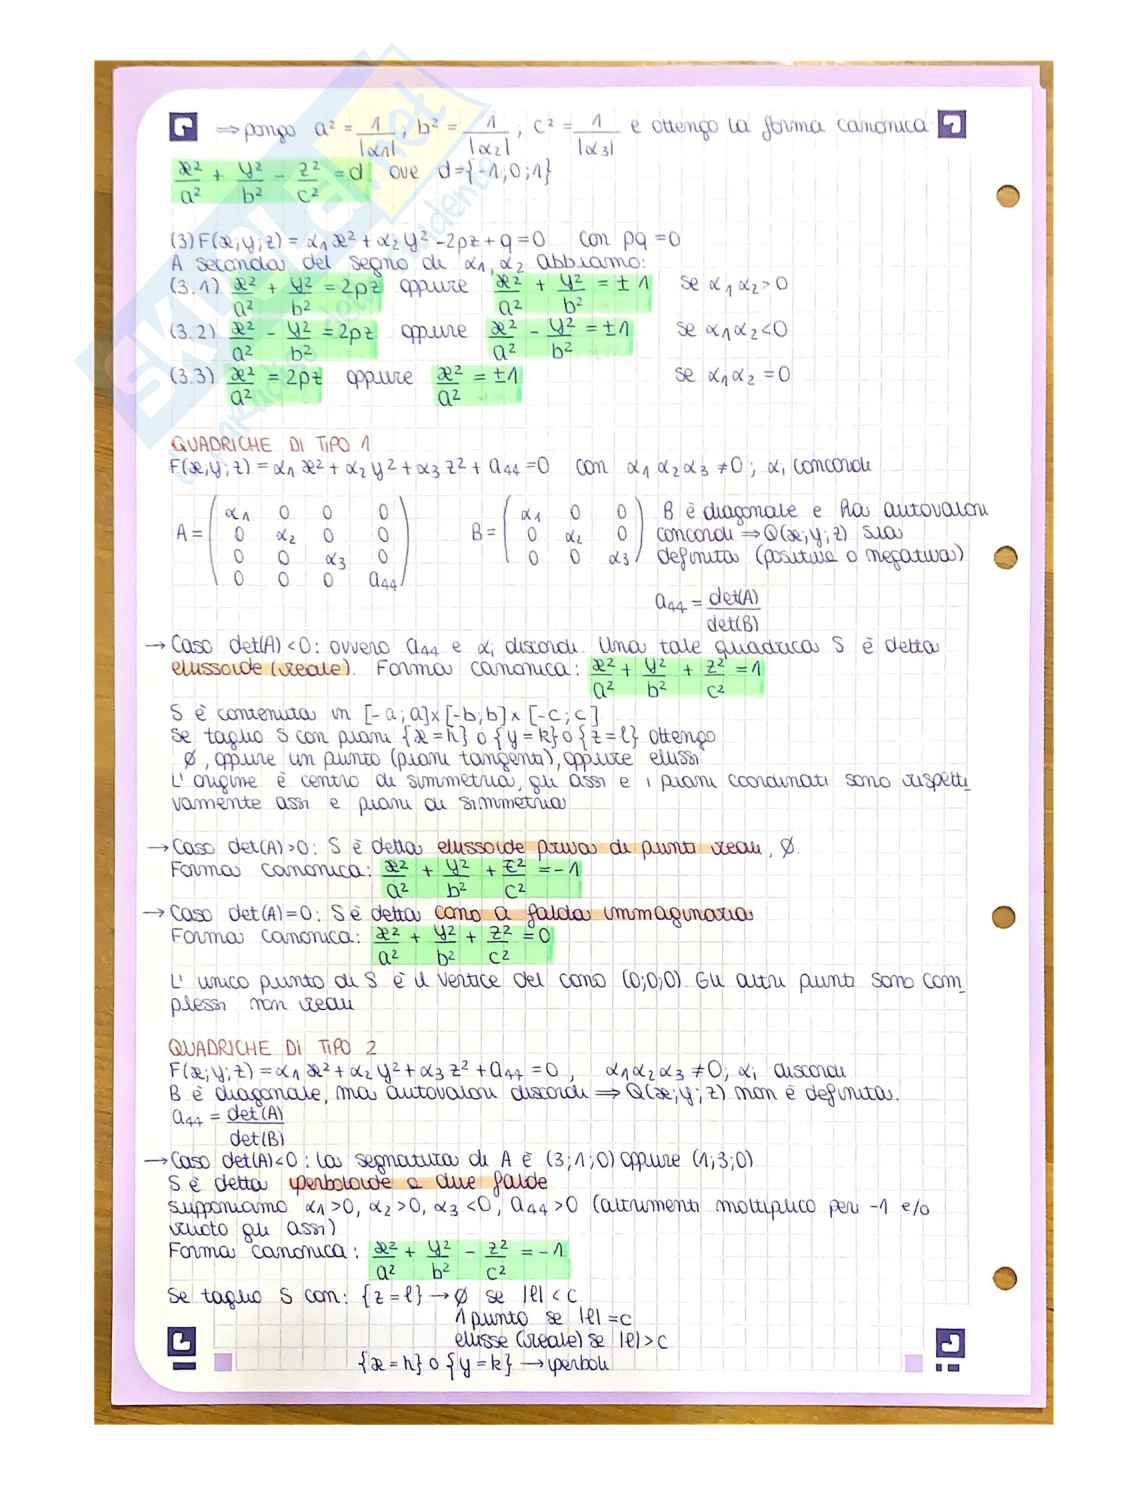 ⇒ pongo a² = 1/|α1| , b² = 1/|α2| , c² = 1/|α3| e ottengo la forma canonica
x²/a² + y²/b² - z²/c² = d ove d={-1;0;1}
(3) F(x;y;z) = α1x² + α2y² -2pz + q = 0 con pq = 0
A seconda del segno di α1, α2 abbiamo:
(3.1) x²/a² + y²/b² = 2pz oppure x²/a² + y²/b² = ±1 se α1α2>0
(3.2) x²/a² - y²/b² = 2pz oppure x²/a² - y²/b² = ±1 se α1α2<0
(3.3) x²/a² = 2pz oppure x²/a² = ±1 se α1α2 = 0
QUADRICHE DI TIPO 1
F(x;y;z) = α1x² + α2y² + α3z² + a44 = 0 con α1α2α3 ≠ 0 ; αi concordi
A = ( α1 0 0 0
0 α2 0 0
0 0 α3 0
0 0 0 a44 )
B = ( α1 0 0
0 α2 0
0 0 α3 )
B è diagonale e ha autovalori
concordi ⇒ Q(x;y;z) sia
definita (positiva o negativa)
a44 = det(A)/det(B)
→ Caso det(A) < 0: ovvero a44 e αi discordi. Una tale quadrica S è detta
elissoide (reale). Forma canonica: x²/a² + y²/b² + z²/c² = 1
S è contenuta in [-a;a]x[-b;b]x[-c;c]
Se taglio S con piani {x=h} o {y=k} o {z=l} ottengo
∅, oppure un punto (piani tangenti), oppure elissi
L'origine è centro di simmetria, gli assi e i piani coordinati sono rispetti_
vamente assi e piani di simmetria
→ Caso det(A)>0: S è detta elissoide priva di punti reali, ∅.
Forma canonica: x²/a² + y²/b² + z²/c² = -1
→ Caso det(A)=0: S è detta cono a falda immaginaria
Forma canonica: x²/a² + y²/b² + z²/c² = 0
L'unico punto di S è il vertice del cono (0;0;0) Gli altri punti sono com_
plessi non reali
QUADRICHE DI TIPO 2
F(x;y;z) = α1x² + α2y² + α3z² + a44 = 0 , α1α2α3 ≠ 0; αi discordi
B è diagonale, ma autovalori discordi ⇒ Q(x;y;z) non è definita.
a44 = det(A)/det(B)
→ Caso det(A)<0: la segnatura di A è (3;1;0) oppure (1;3;0)
S è detta iperboloide a due falde
supponiamo α1>0, α2>0, α3<0, a44>0 (altrimenti moltiplico per -1 e/o
ruoto gli assi)
Forma canonica: x²/a² + y²/b² - z²/c² = -1
Se taglio S con: {z=l} → ∅ se |l| < c
1 punto se |l| = c
elisse (reale) se |l| > c
{x=h} o {y=k} → iperboli